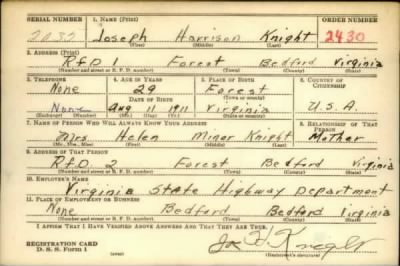 SERIAL NUMBER 1. NAME (Print) ORDER NUMBER
Joseph Harrison Knight 2430
(First) (Middle) (Last)
2. ADDRESS (Print)
RFD 1 Forest Bedford Virginia
(Number and street or R. F. D. number) (Town) (County) (State)
3. TELEPHONE 4. AGE IN YEARS 5. PLACE OF BIRTH 6. COUNTRY OF CITIZENSHIP
None 29 Forest
DATE OF BIRTH (Town or county)
None Aug 11 1911 Virginia U.S.A.
(Exchange) (Number) (Mo.) (Day) (Yr.) (State or country)
7. NAME OF PERSON WHO WILL ALWAYS KNOW YOUR ADDRESS 8. RELATIONSHIP OF THAT PERSON
Mrs Helen Minor Knight Mother
(Mr., Mrs., Miss) (First) (Middle) (Last)
9. ADDRESS OF THAT PERSON
RFD 2 Forest Bedford Virginia
(Number and street or R. F. D. number) (Town) (County) (State)
10. EMPLOYER'S NAME
Virginia State Highway Department
11. PLACE OF EMPLOYMENT OR BUSINESS
None Bedford Bedford Virginia
(Number and street or R. F. D. number) (Town) (County) (State)
I AFFIRM THAT I HAVE VERIFIED ABOVE ANSWERS AND THAT THEY ARE TRUE.
REGISTRATION CARD
D. S. S. Form 1
Jos H Knight